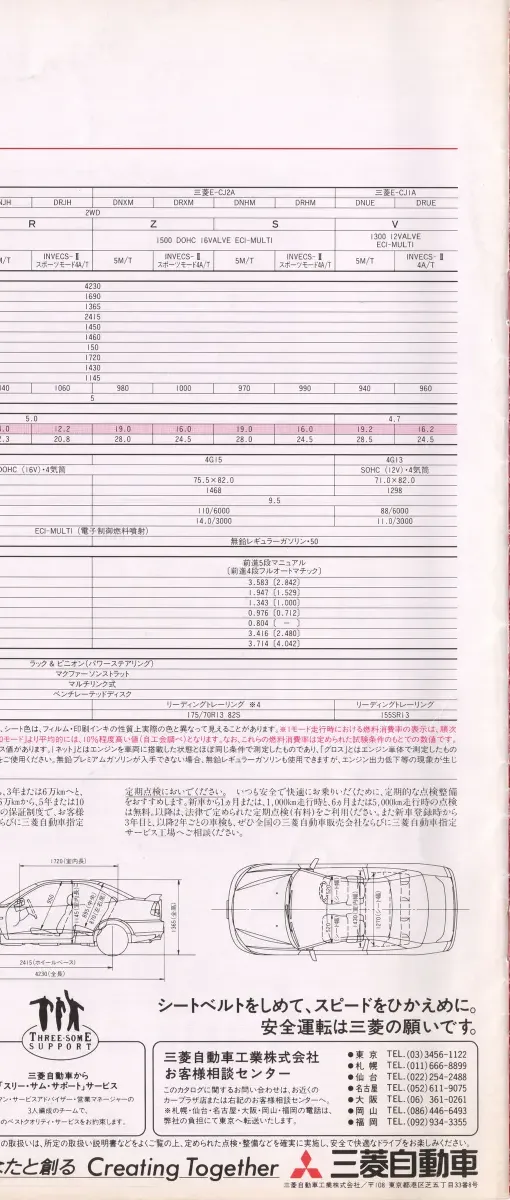 三菱E-CJ2A 三菱E-CJ1A
DRJH DNXM DRXM DNHM DRHM DNUE DRUE
2WD
R Z S V
1500 DOHC 16VALVE ECI-MULTI 1300 12VALVE ECI-MULTI
INVECS-Ⅱ スポーツモード4A/T 5M/T INVECS-Ⅱ スポーツモード4A/T 5M/T INVECS-Ⅱ スポーツモード4A/T 5M/T INVECS-Ⅱ 4A/T
4230
1690
1365
2415
1450
1460
150
1720
1430
1145
1060 980 1000 970 990 940 960
5
5.0 4.7
12.2 19.0 16.0 19.0 16.0 19.2 16.2
20.8 28.0 24.5 28.0 24.5 28.5 24.5
4G15 4G13
DOHC (16V)・4気筒 SOHC (12V)・4気筒
75.5×82.0 71.0×82.0
1468 1298
9.5
110/6000 88/6000
14.0/3000 11.0/3000
ECI-MULTI (電子制御燃料噴射)
無鉛レギュラーガソリン・50
前進5段マニュアル
〔前進4段フルオートマチック〕
3.583〔2.842〕
1.947〔1.529〕
1.343〔1.000〕
0.976〔0.712〕
0.804〔 - 〕
3.416〔2.480〕
3.714〔4.042〕
ラック&ピニオン(パワーステアリング)
マクファーソンストラット
マルチリンク式
ベンチレーテッドディスク
リーディングトレーリング ※4 リーディングトレーリング
175/70R13 82S 155SR13
、シート色は、フィルム・印刷インキの性質上実際の色と異なって見えることがあります。※1モード走行時における燃料消費率の表示は、順次
0モード」より平均的には、10%程度高い値(自工会調べ)となります。なお、これらの燃料消費率は定められた試験条件のもとでの数値です。
ス値があります。「ネット」とはエンジンを車両に搭載した状態とほぼ同じ条件で測定したものであり、「グロス」とはエンジン単体で測定したもの
ご使用ください。無鉛プレミアムガソリンが入手できない場合、無鉛レギュラーガソリンも使用できますが、エンジン出力低下等の現象が生じ
、3年または6万kmへと、
6万kmから、5年または10
の保証制度で、お客様
らびに三菱自動車指定
定期点検においでください。 いつも安全で快適にお乗りいただくために、定期的な点検整備
をおすすめします。新車から1ヵ月または、1,000km走行時と、6ヵ月または5,000km走行時の点検
は無料。以降は、法律で定められた定期点検(有料)をご利用ください。また新車登録時から
3年目と、以降2年ごとの車検も、ぜひ全国の三菱自動車販売会社ならびに三菱自動車指定
サービス工場へご相談ください。
1720(室内長)
1145(室内高)
1365(全高)
2415(ホイールベース)
4230(全長)
1430(室内幅)
1270(シート幅)
THREE・SOME
SUPPORT
シートベルトをしめて、スピードをひかえめに。
安全運転は三菱の願いです。
三菱自動車から
「スリー・サム・サポート」サービス
マン・サービスアドバイザー・営業マネージャーの
3人編成のチームで、
のベストクオリティ・サービスをお約束します。
三菱自動車工業株式会社
お客様相談センター
このカタログに関するお問い合わせは、お近くの
カープラザ店または右記のお客様相談センターへ。
※札幌・仙台・名古屋・大阪・岡山・福岡の電話は、
弊社の負担にて東京へ転送いたします。
●東 京 TEL.(03)3456-1122
●札 幌 TEL.(011)666-8899
●仙 台 TEL.(022)254-2488
●名古屋 TEL.(052)611-9075
●大 阪 TEL.(06) 361-0261
●岡 山 TEL.(086)446-6493
●福 岡 TEL.(092)934-3355
の取扱いは、所定の取扱い説明書などをよくご覧の上、定められた点検・整備などを確実に実施し、安全で快適なドライブをお楽しみください。
なたと創る Creating Together 三菱自動車
三菱自動車工業株式会社/〒108 東京都港区芝五丁目33番8号